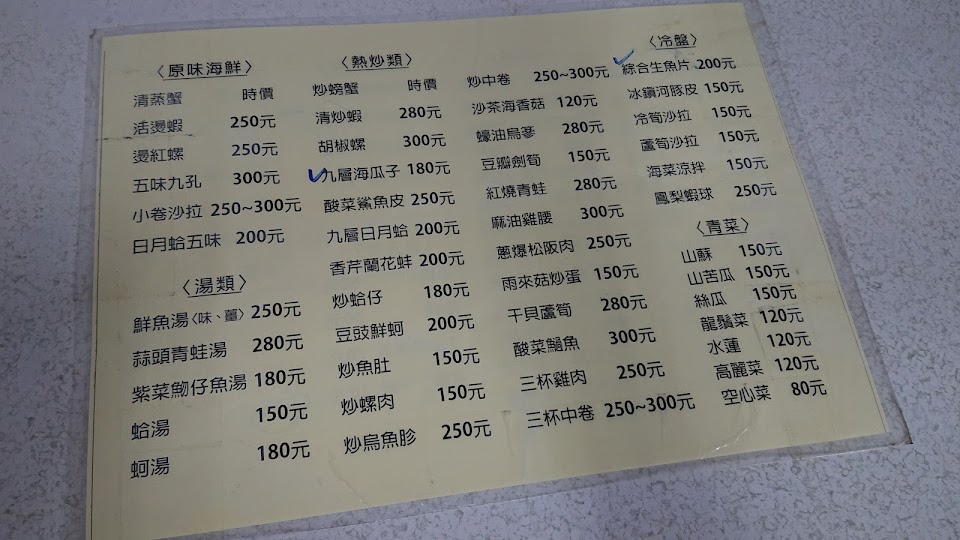 〈原味海鮮〉
清蒸蟹 時價
活燙蝦 250元
燙紅螺 250元
五味九孔 300元
小卷沙拉 250~300元
日月蛤五味 200元
〈湯類〉
鮮魚湯〈味、薑〉 250元
蒜頭青蛙湯 280元
紫菜魩仔魚湯 180元
蛤湯 150元
蚵湯 180元
〈熱炒類〉
炒螃蟹 時價
清炒蝦 280元
胡椒螺 300元
九層海瓜子 180元
酸菜鯊魚皮 250元
九層日月蛤 200元
香芹蘭花蚌 200元
炒蛤仔 180元
豆豉鮮蚵 200元
炒魚肚 150元
炒螺肉 150元
炒烏魚胗 250元
炒中卷 250~300元
沙茶海香菇 120元
蠔油烏蔘 280元
豆瓣劍筍 150元
紅燒青蛙 280元
麻油雞腰 300元
蔥爆松阪肉 250元
雨來菇炒蛋 150元
干貝蘆筍 280元
酸菜鮸魚 300元
三杯雞肉 250元
三杯中卷 250~300元
〈冷盤〉
綜合生魚片 200元
冰鎮河豚皮 150元
冷筍沙拉 150元
蘆筍沙拉 150元
海菜涼拌 150元
鳳梨蝦球 250元
〈青菜〉
山蘇 150元
山苦瓜 150元
絲瓜 150元
龍鬚菜 120元
水蓮 120元
高麗菜 120元
空心菜 80元